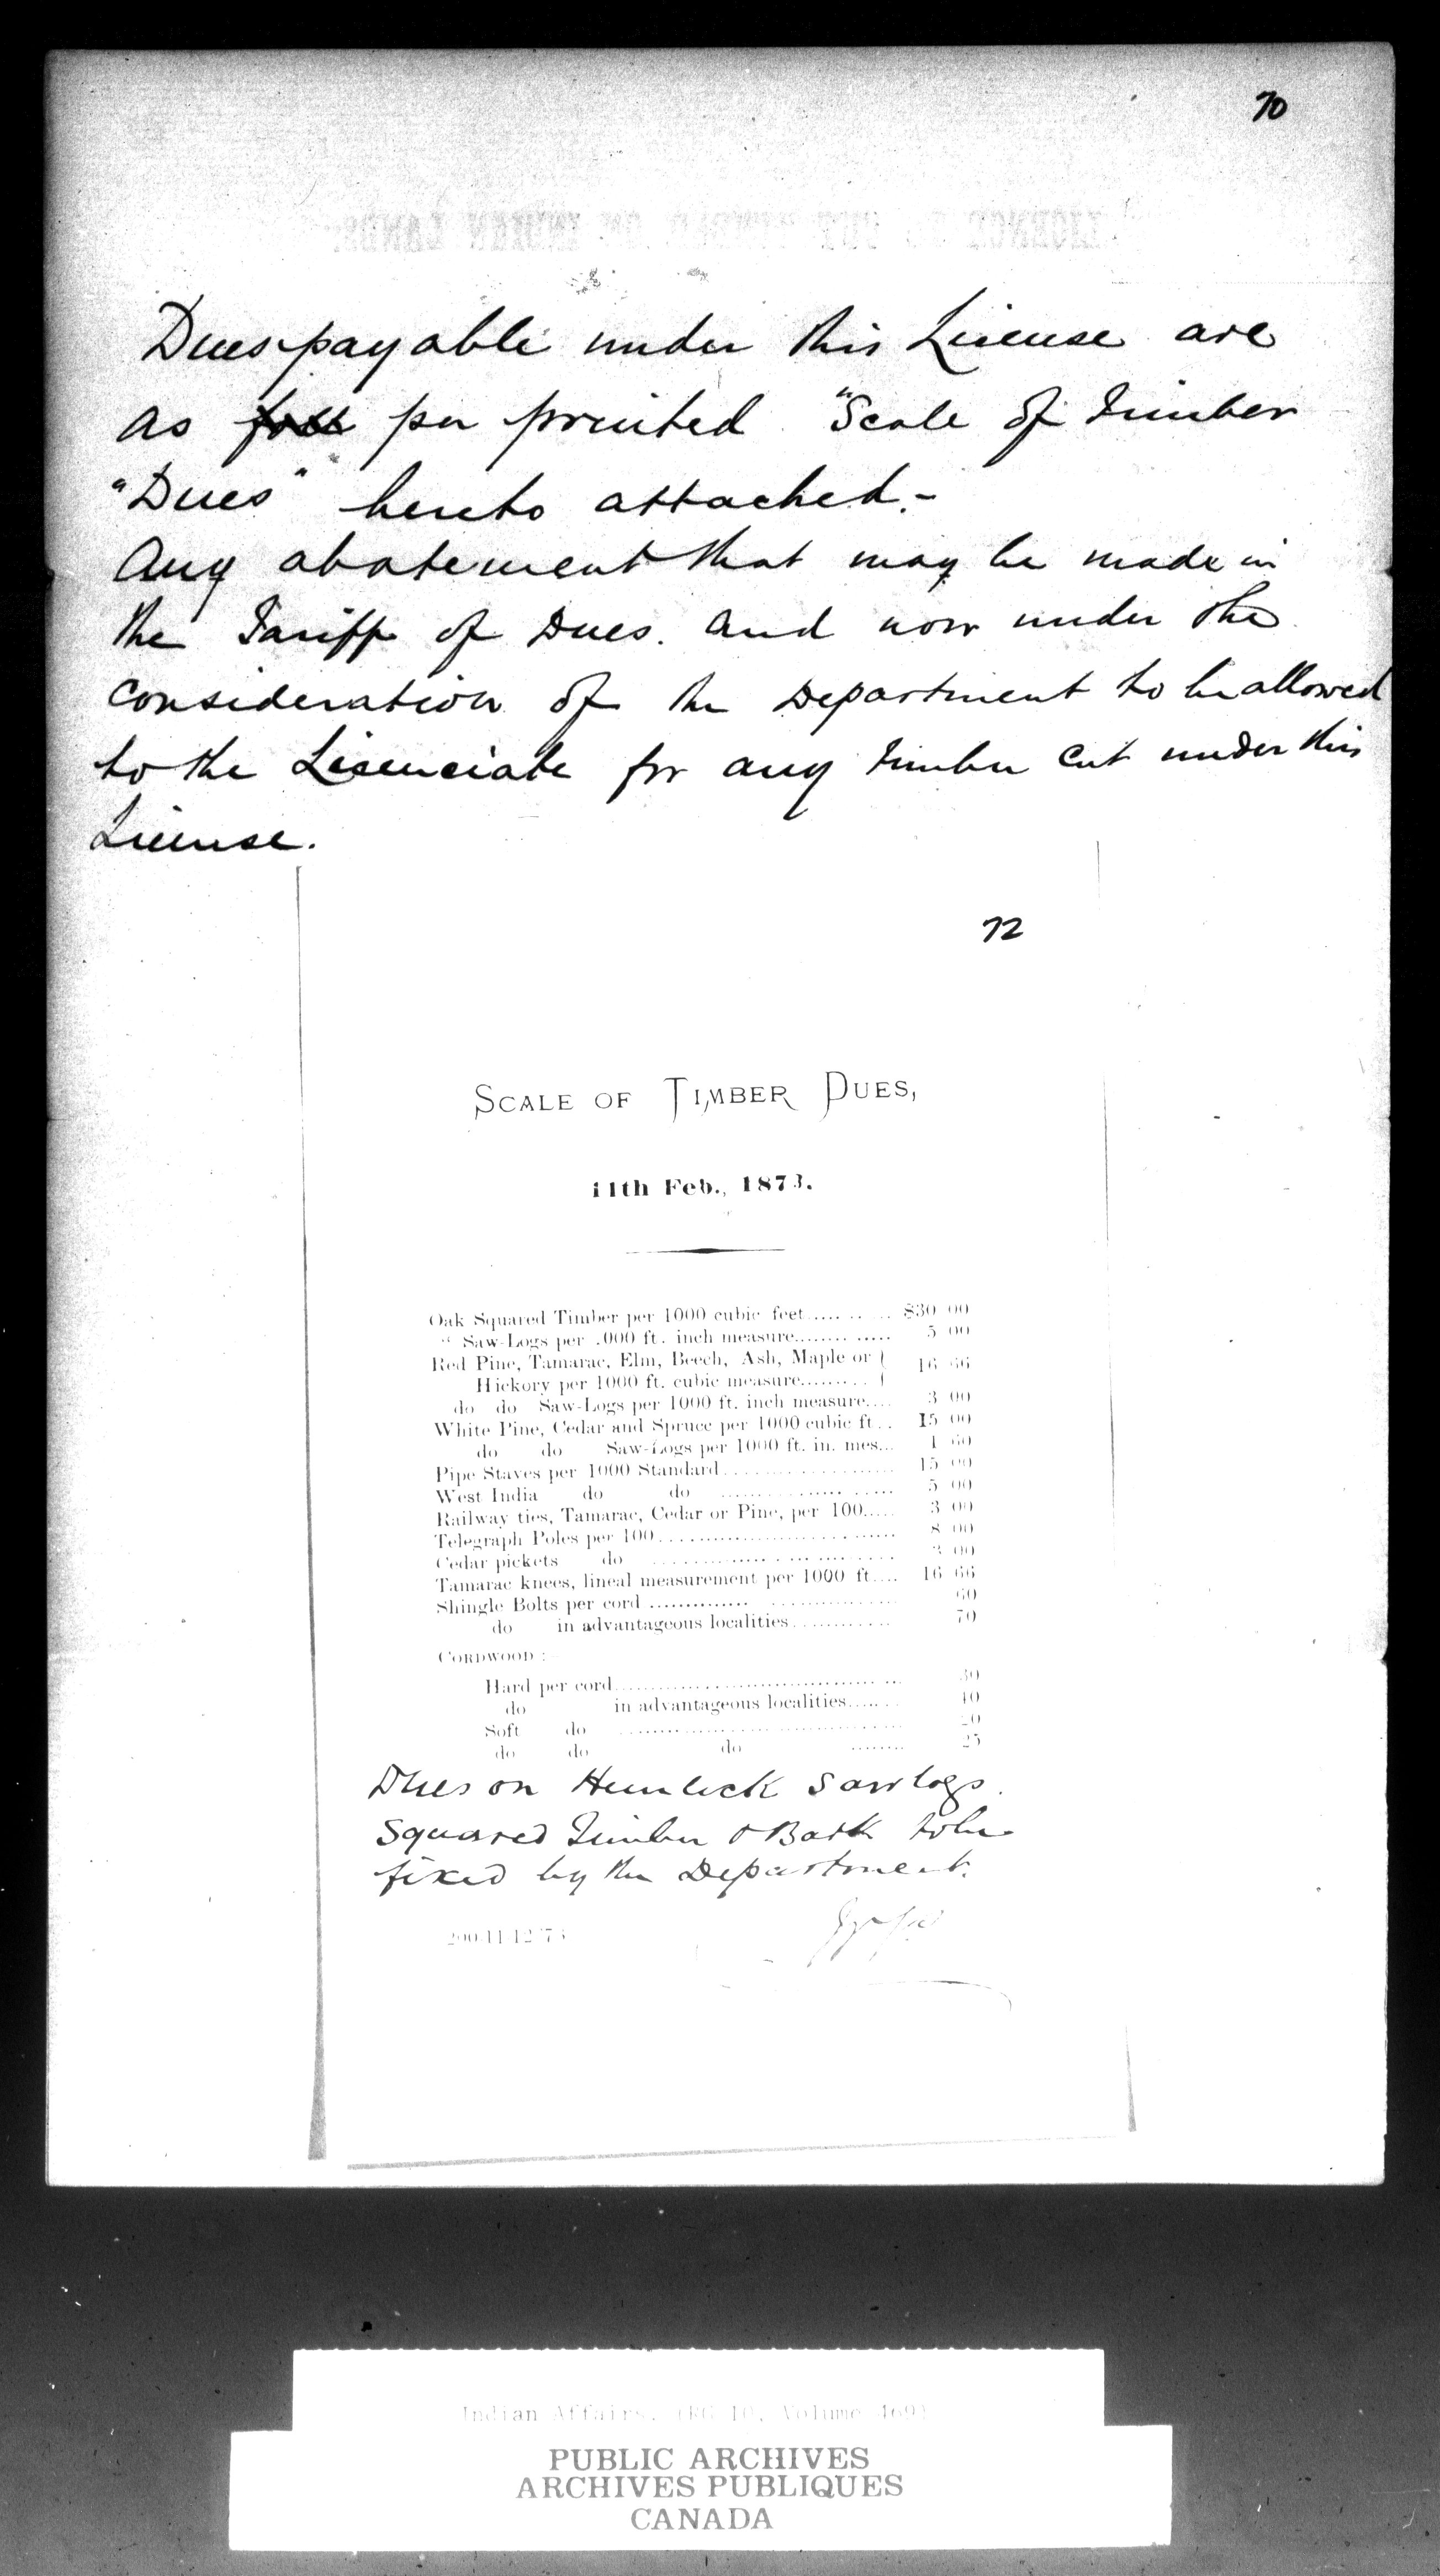 70
LICENCE TO CUT TIMBER ON INDIAN LANDS.
Dues payable under this License are
as foll per printed "Scale of Timber
"Dues" hereto attached.-
Any abatement that may be made in
the Tariff of Dues. and now under the
consideration of the Department to be allowed
to the Licenciate for any timber cut under this
License.
72
SCALE OF TIMBER DUES,
11th Feb., 1873.
Oak Squared Timber per 1000 cubic feet........... $30 00
" Saw-Logs per 1000 ft. inch measure............. 5 00
Red Pine, Tamarac, Elm, Beech, Ash, Maple or
Hickory per 1000 ft. cubic measure......... 16 66
do do Saw-Logs per 1000 ft. inch measure.... 3 00
White Pine, Cedar and Spruce per 1000 cubic ft.. 15 00
do do Saw-Logs per 1000 ft. in. mes... 1 60
Pipe Staves per 1000 Standard.................... 15 00
West India do do .................... 5 00
Railway ties, Tamarac, Cedar or Pine, per 100..... 3 00
Telegraph Poles per 100........................... 8 00
Cedar pickets do ........................... 3 00
Tamarac knees, lineal measurement per 1000 ft.... 16 66
Shingle Bolts per cord ........................... 60
do in advantageous localities............ 70
CORDWOOD :—
Hard per cord.................................. 30
do in advantageous localities....... 40
Soft do .................................. 20
do do do ........ 25
Dues on Hemlock Sawlogs.
Squared Timber & Bark to be
fixed by the Department.
200-11-12-'73
Indian Affairs. (RG 10, Volume 469)
PUBLIC ARCHIVES
ARCHIVES PUBLIQUES
CANADA